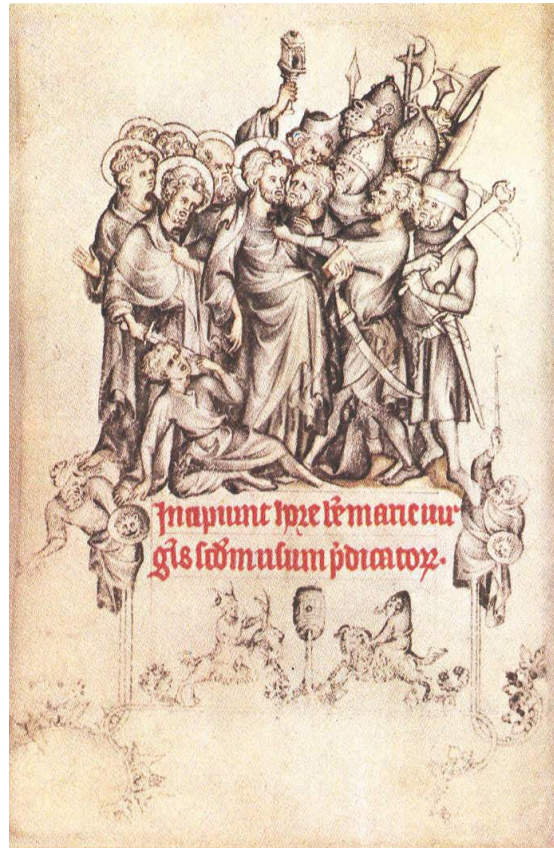 Incipiunt hore be marie uir
gis scdm usum pdicator.